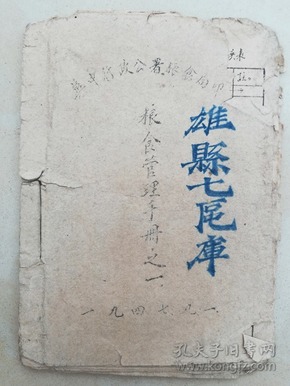 冀中行政公署粮食局印
雄縣七區庫
粮食管理手册之一
一九四七、九、一
1
孔夫子旧书网